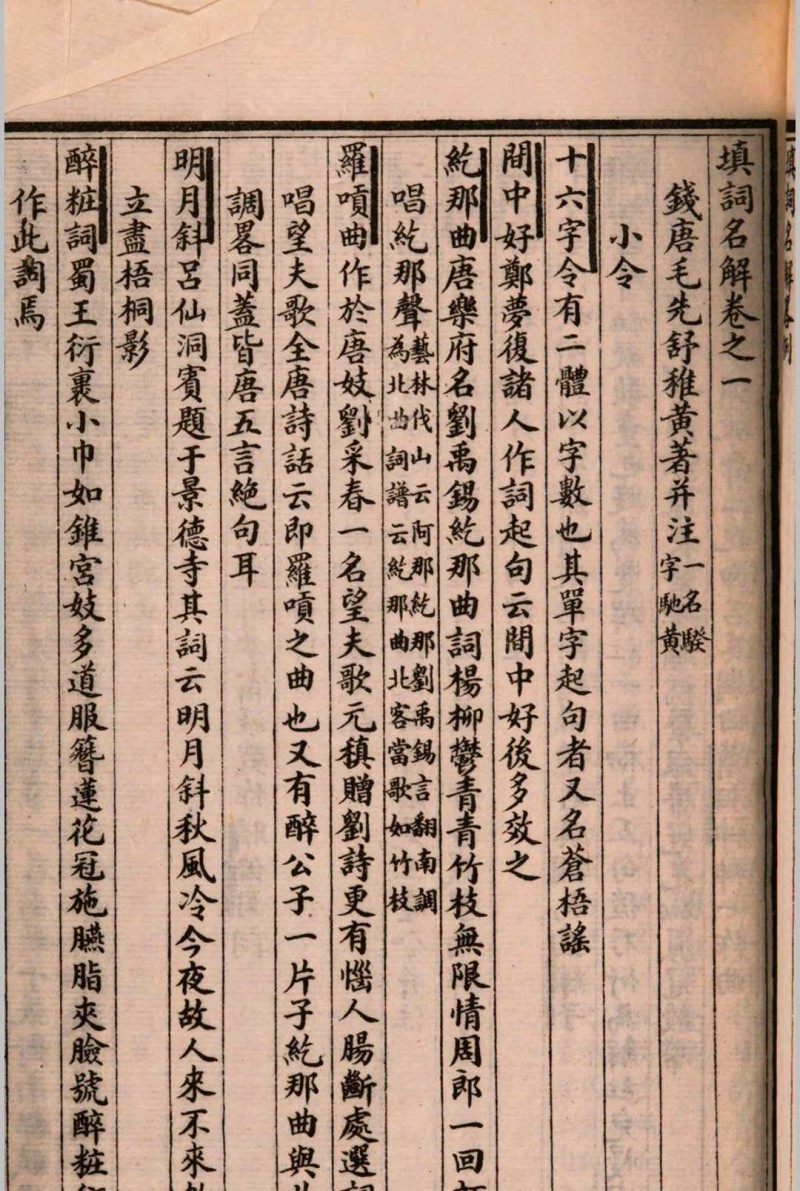 填詞名解卷之一
錢唐毛先舒稚黃著并注一名騤字馳黃
小令
十六字令有二體以字數也其單字起句者又名蒼梧謠
間中好鄭夢復諸人作詞起句云間中好後多效之
紇那曲唐樂府名劉禹錫紇那曲詞楊柳鬱青青竹枝無限情周郎一回
唱紇那聲藝林伐山云阿那紇那劉禹錫言翻南調為北曲詞譜云紇那曲北客當歌如竹枝
羅嗊曲作於唐妓劉采春一名望夫歌元稹贈劉詩更有惱人腸斷處選詞
唱望夫歌全唐詩話云即羅嗊之曲也又有醉公子一片子紇那曲與此
調畧同蓋皆唐五言絶句耳
明月斜呂仙洞賓題于景德寺其詞云明月斜秋風冷今夜故人來不來
立盡梧桐影
醉粧詞蜀王衍裹小巾如錐宮妓多道服簪蓮花冠施臙脂夾臉號醉粧
作此詞焉